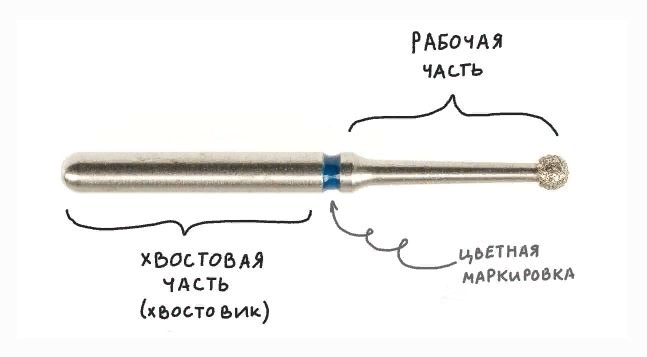 РАБОЧАЯ
ЧАСТЬ
ХВОСТОВАЯ
ЧАСТЬ
(ХВОСТОВИК)
ЦВЕТНАЯ
МАРКИРОВКА